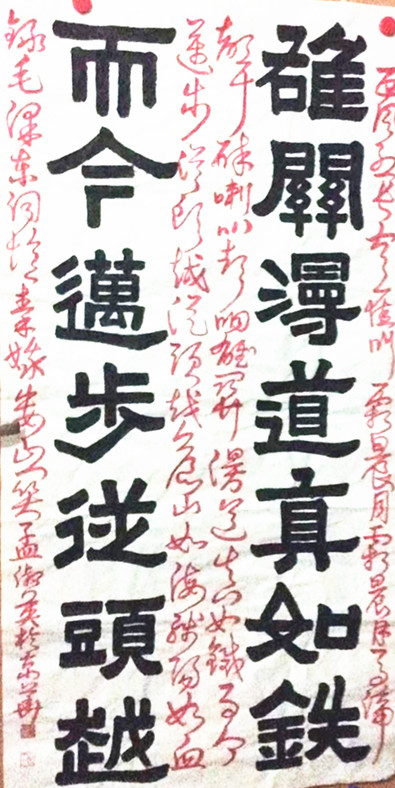 西風烈長空雁叫霜晨月霜晨月馬蹄
雄關漫道真如鉄
聲碎喇叭聲咽雄關漫道真如鐵而今
邁步從頭越從頭越蒼山如海殘陽如血
而今邁步從頭越
錄毛澤東詞憶秦娥婁山关孟於京華